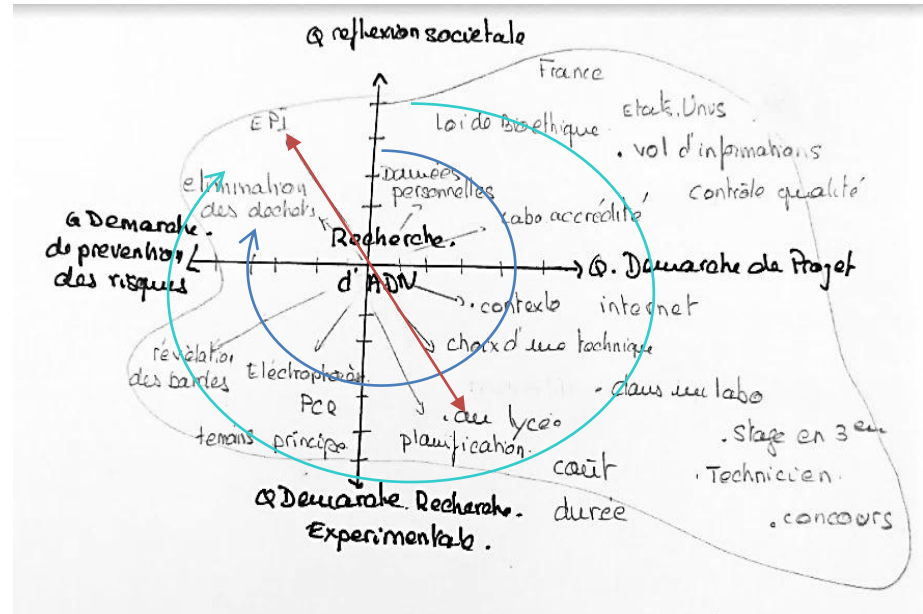 Q reflexion societale
France
EPI
Loi de Bioethique
Etats. Unus
. vol d'informations
Données
personnelles
contrôle qualité
elimination
des dechets
Labo accrédité
Q Demarche.
de prevention
des risques
Recherche.
d'ADN
Q. Demarche de Projet
. contexte
internet
choix d'une technique
révélation
des bandes
Eléctrophorèse
. dans un labo
PCR
. au lycée
. Stage en 3 em
temoins
principe
planification.
coût
. Technicien.
Q Demarche. Recherche.
Experimentale.
durée
. concours